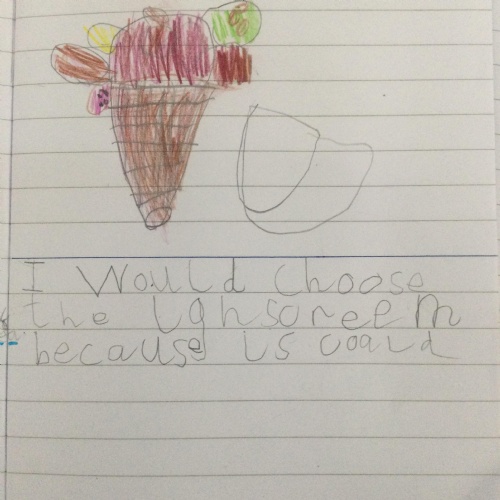 I Would Choose
the ighsoreem
because is coard